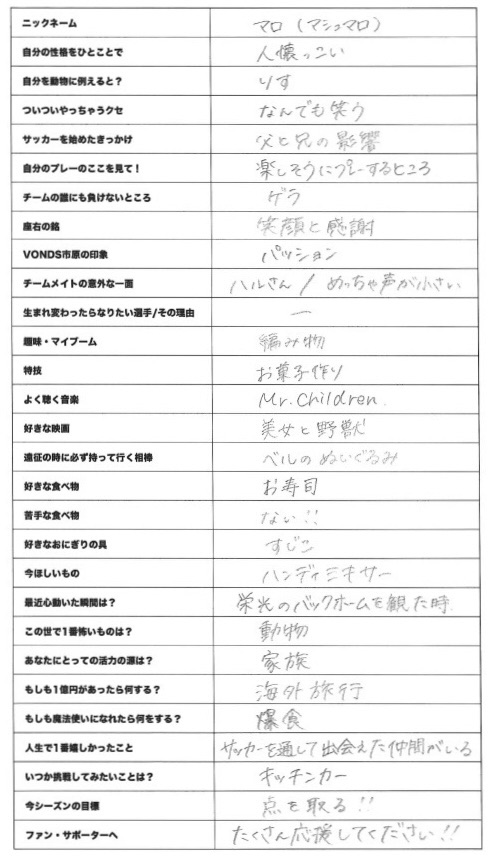 ニックネーム マロ（マシュマロ）
自分の性格をひとことで 人懐っこい
自分を動物に例えると？ りす
ついついやっちゃうクセ なんでも笑う
サッカーを始めたきっかけ 父と兄の影響
自分のプレーのここを見て！ 楽しそうにプレーするところ
チームの誰にも負けないところ ゲラ
座右の銘 笑顔と感謝
VONDS市原の印象 パッション
チームメイトの意外な一面 ハルさん / めっちゃ声が小さい
生まれ変わったらなりたい選手/その理由 ー
趣味・マイブーム 編み物
特技 お菓子作り
よく聴く音楽 Mr.Children.
好きな映画 美女と野獣
遠征の時に必ず持って行く相棒 ベルのぬいぐるみ
好きな食べ物 お寿司
苦手な食べ物 ない!!
好きなおにぎりの具 すじこ
今ほしいもの ハンディミキサー
最近心動いた瞬間は？ 栄光のバックホームを観た時.
この世で1番怖いものは？ 動物
あなたにとっての活力の源は？ 家族
もしも1億円があったら何する？ 海外旅行
もしも魔法使いになれたら何をする？ 爆食
人生で1番嬉しかったこと サッカーを通して出会えた仲間がいる
いつか挑戦してみたいことは？ キッチンカー
今シーズンの目標 点を取る!!
ファン・サポーターへ たくさん応援してください!!